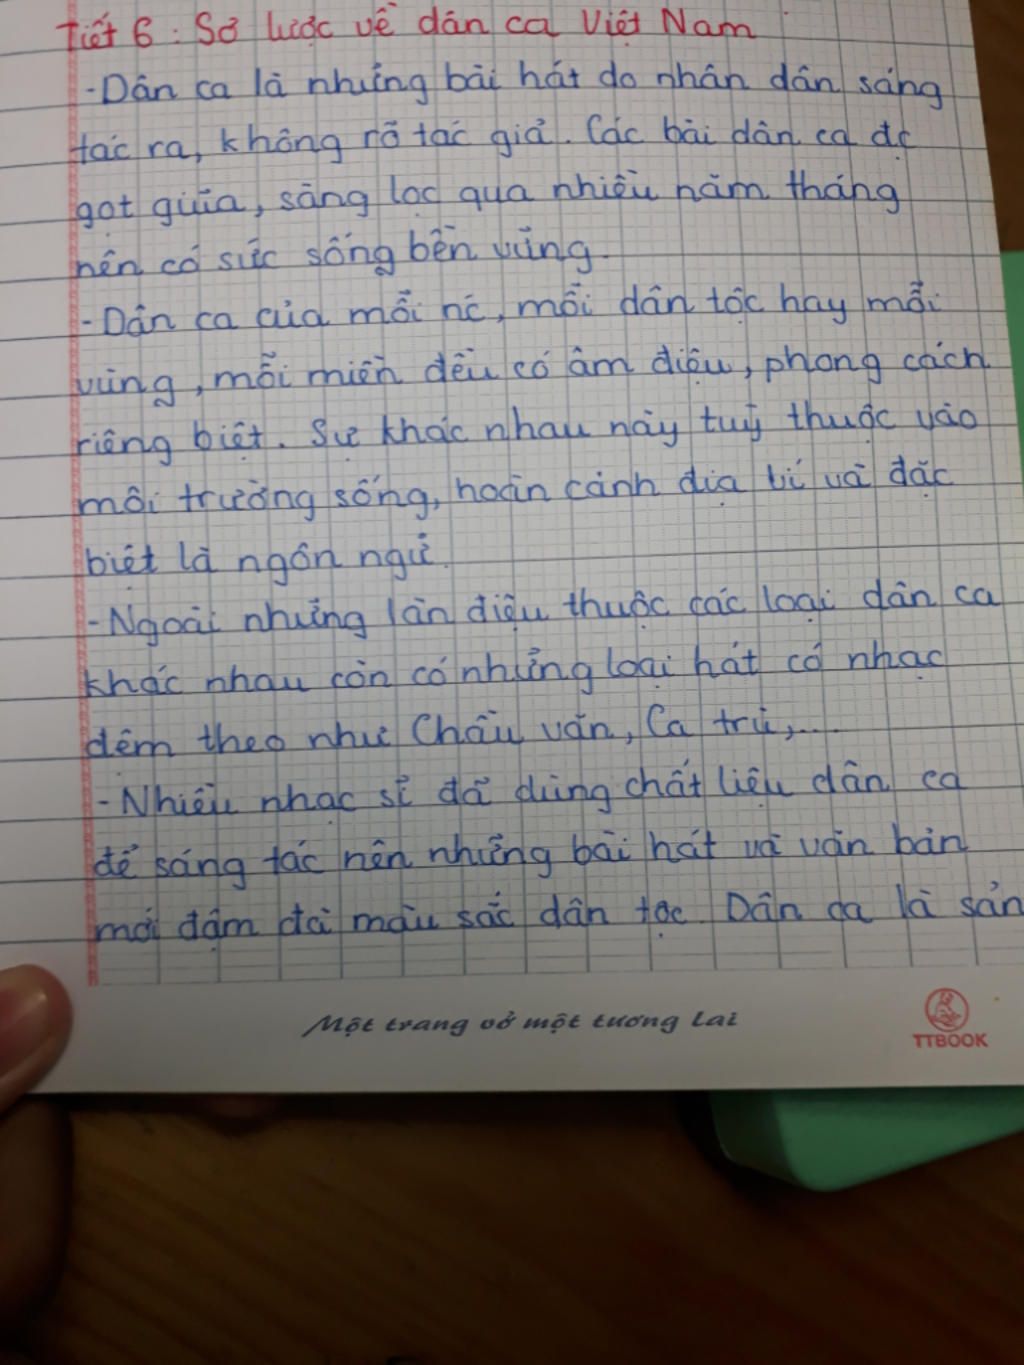 Tiết 6 : Sơ lược về dân ca Việt Nam
- Dân ca là những bài hát do nhân dân sáng
tác ra, không rõ tác giả. Các bài dân ca đc
gọt giũa, sàng lọc qua nhiều năm tháng
nên có sức sống bền vững.
- Dân ca của mỗi nc, mỗi dân tộc hay mỗi
vùng, mỗi miền đều có âm điệu, phong cách
riêng biệt. Sự khác nhau này tuỳ thuộc vào
môi trường sống, hoàn cảnh địa lí và đặc
biệt là ngôn ngữ.
- Ngoài những làn điệu thuộc các loại dân ca
khác nhau còn có những loại hát có nhạc
đêm theo như Chầu văn, Ca trù,...
- Nhiều nhạc sĩ đã dùng chất liệu dân ca
để sáng tác nên những bài hát và văn bản
mới đậm đà màu sắc dân tộc. Dân ca là sản
Một trang vở một tương lai
TTBOOK